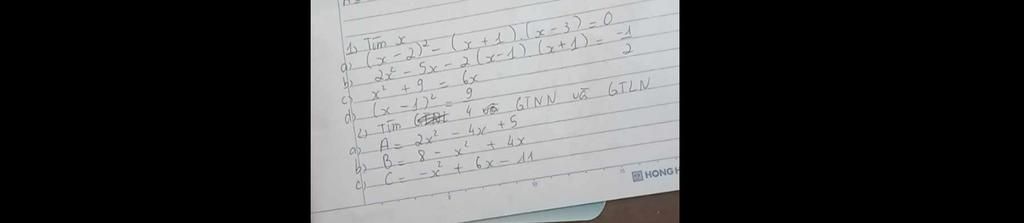 1) Tìm x
a) (x - 2)² - (x + 1).(x - 3) = 0
b) 2x² - 5x - 2(x-1).(x+1) = -1/2
c) x² + 9 = 6x
d) (x - 1)² = 9/4
2) Tìm GTNN và GTLN
a) A = 2x² - 4x + 5
b) B = 8 - x² + 4x
c) C = -x² + 6x - 11
HONG H